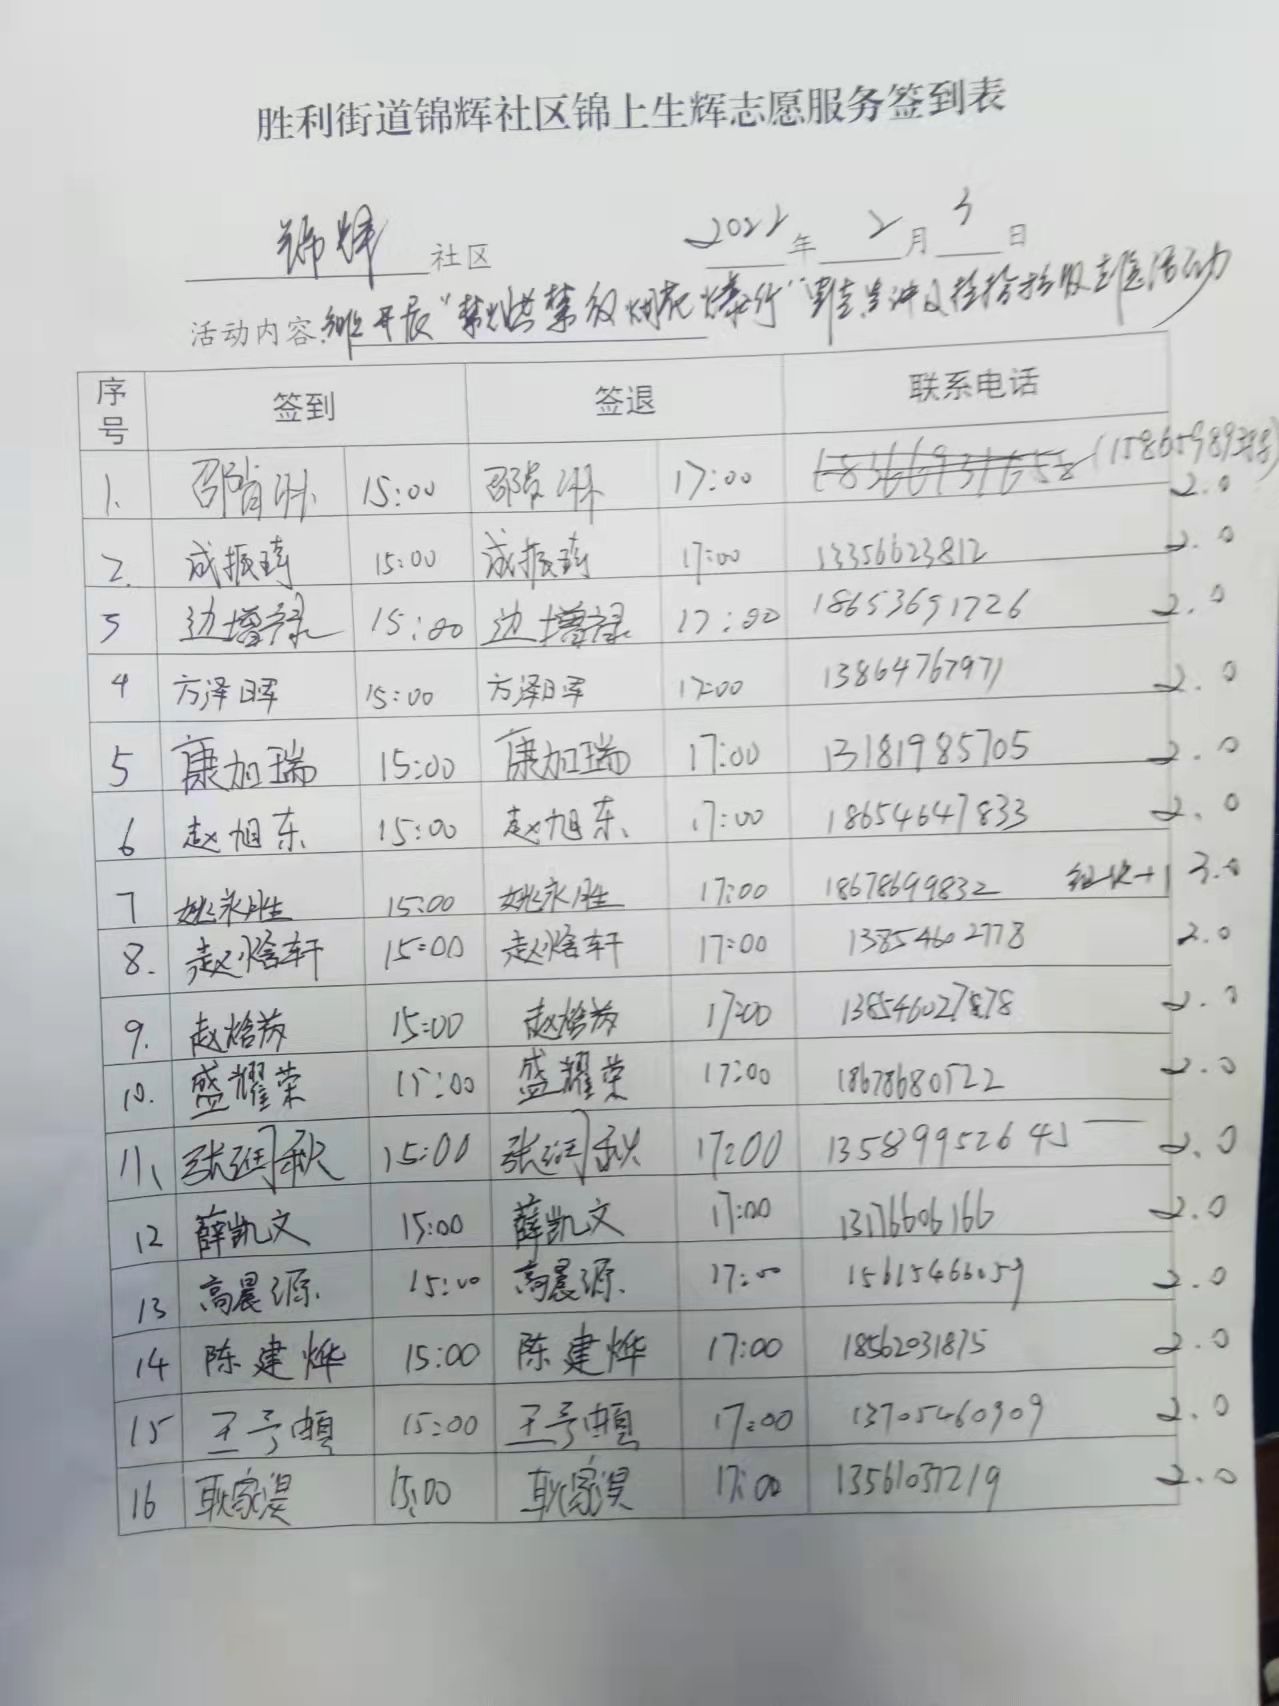 胜利街道锦辉社区锦上生辉志愿服务签到表
锦辉 社区 2022 年 2 月 3 日
活动内容: 开展"禁燃禁放烟花爆竹" 活动
序号 签到 签退 联系电话
1. 邵 15:00 邵 17:00 18366931658 (15865989 2.0
2. 成振琦 15:00 成振琦 17:00 13356623812 2.0
3 边增禄 15:00 边增禄 17:00 18653691726 2.0
4 方泽晖 15:00 方泽晖 17:00 13864767971 2.0
5 康加瑞 15:00 康加瑞 17:00 13181985705 2.0
6 赵旭东 15:00 赵旭东 17:00 18654647833 2.0
7 姚永胜 15:00 姚永胜 17:00 18678699832 组织+1 3.0
8. 赵焓轩 15:00 赵焓轩 17:00 13854602778 2.0
9. 赵焓 15:00 赵焓 17:00 2.0
10. 盛耀荣 15:00 盛耀荣 17:00 18678680522 2.0
11、 张润秋 15:00 张润秋 17:00 13589952645 2.0
12 薛凯文 15:00 薛凯文 17:00 13176606166 2.0
13 高晨源 15:00 高晨源 17:00 15615466059 2.0
14 陈建烨 15:00 陈建烨 17:00 18562031875 2.0
15 王 15:00 王 17:00 13705460909 2.0
16 耿家淏 15:00 耿家淏 17:00 13561037219 2.0